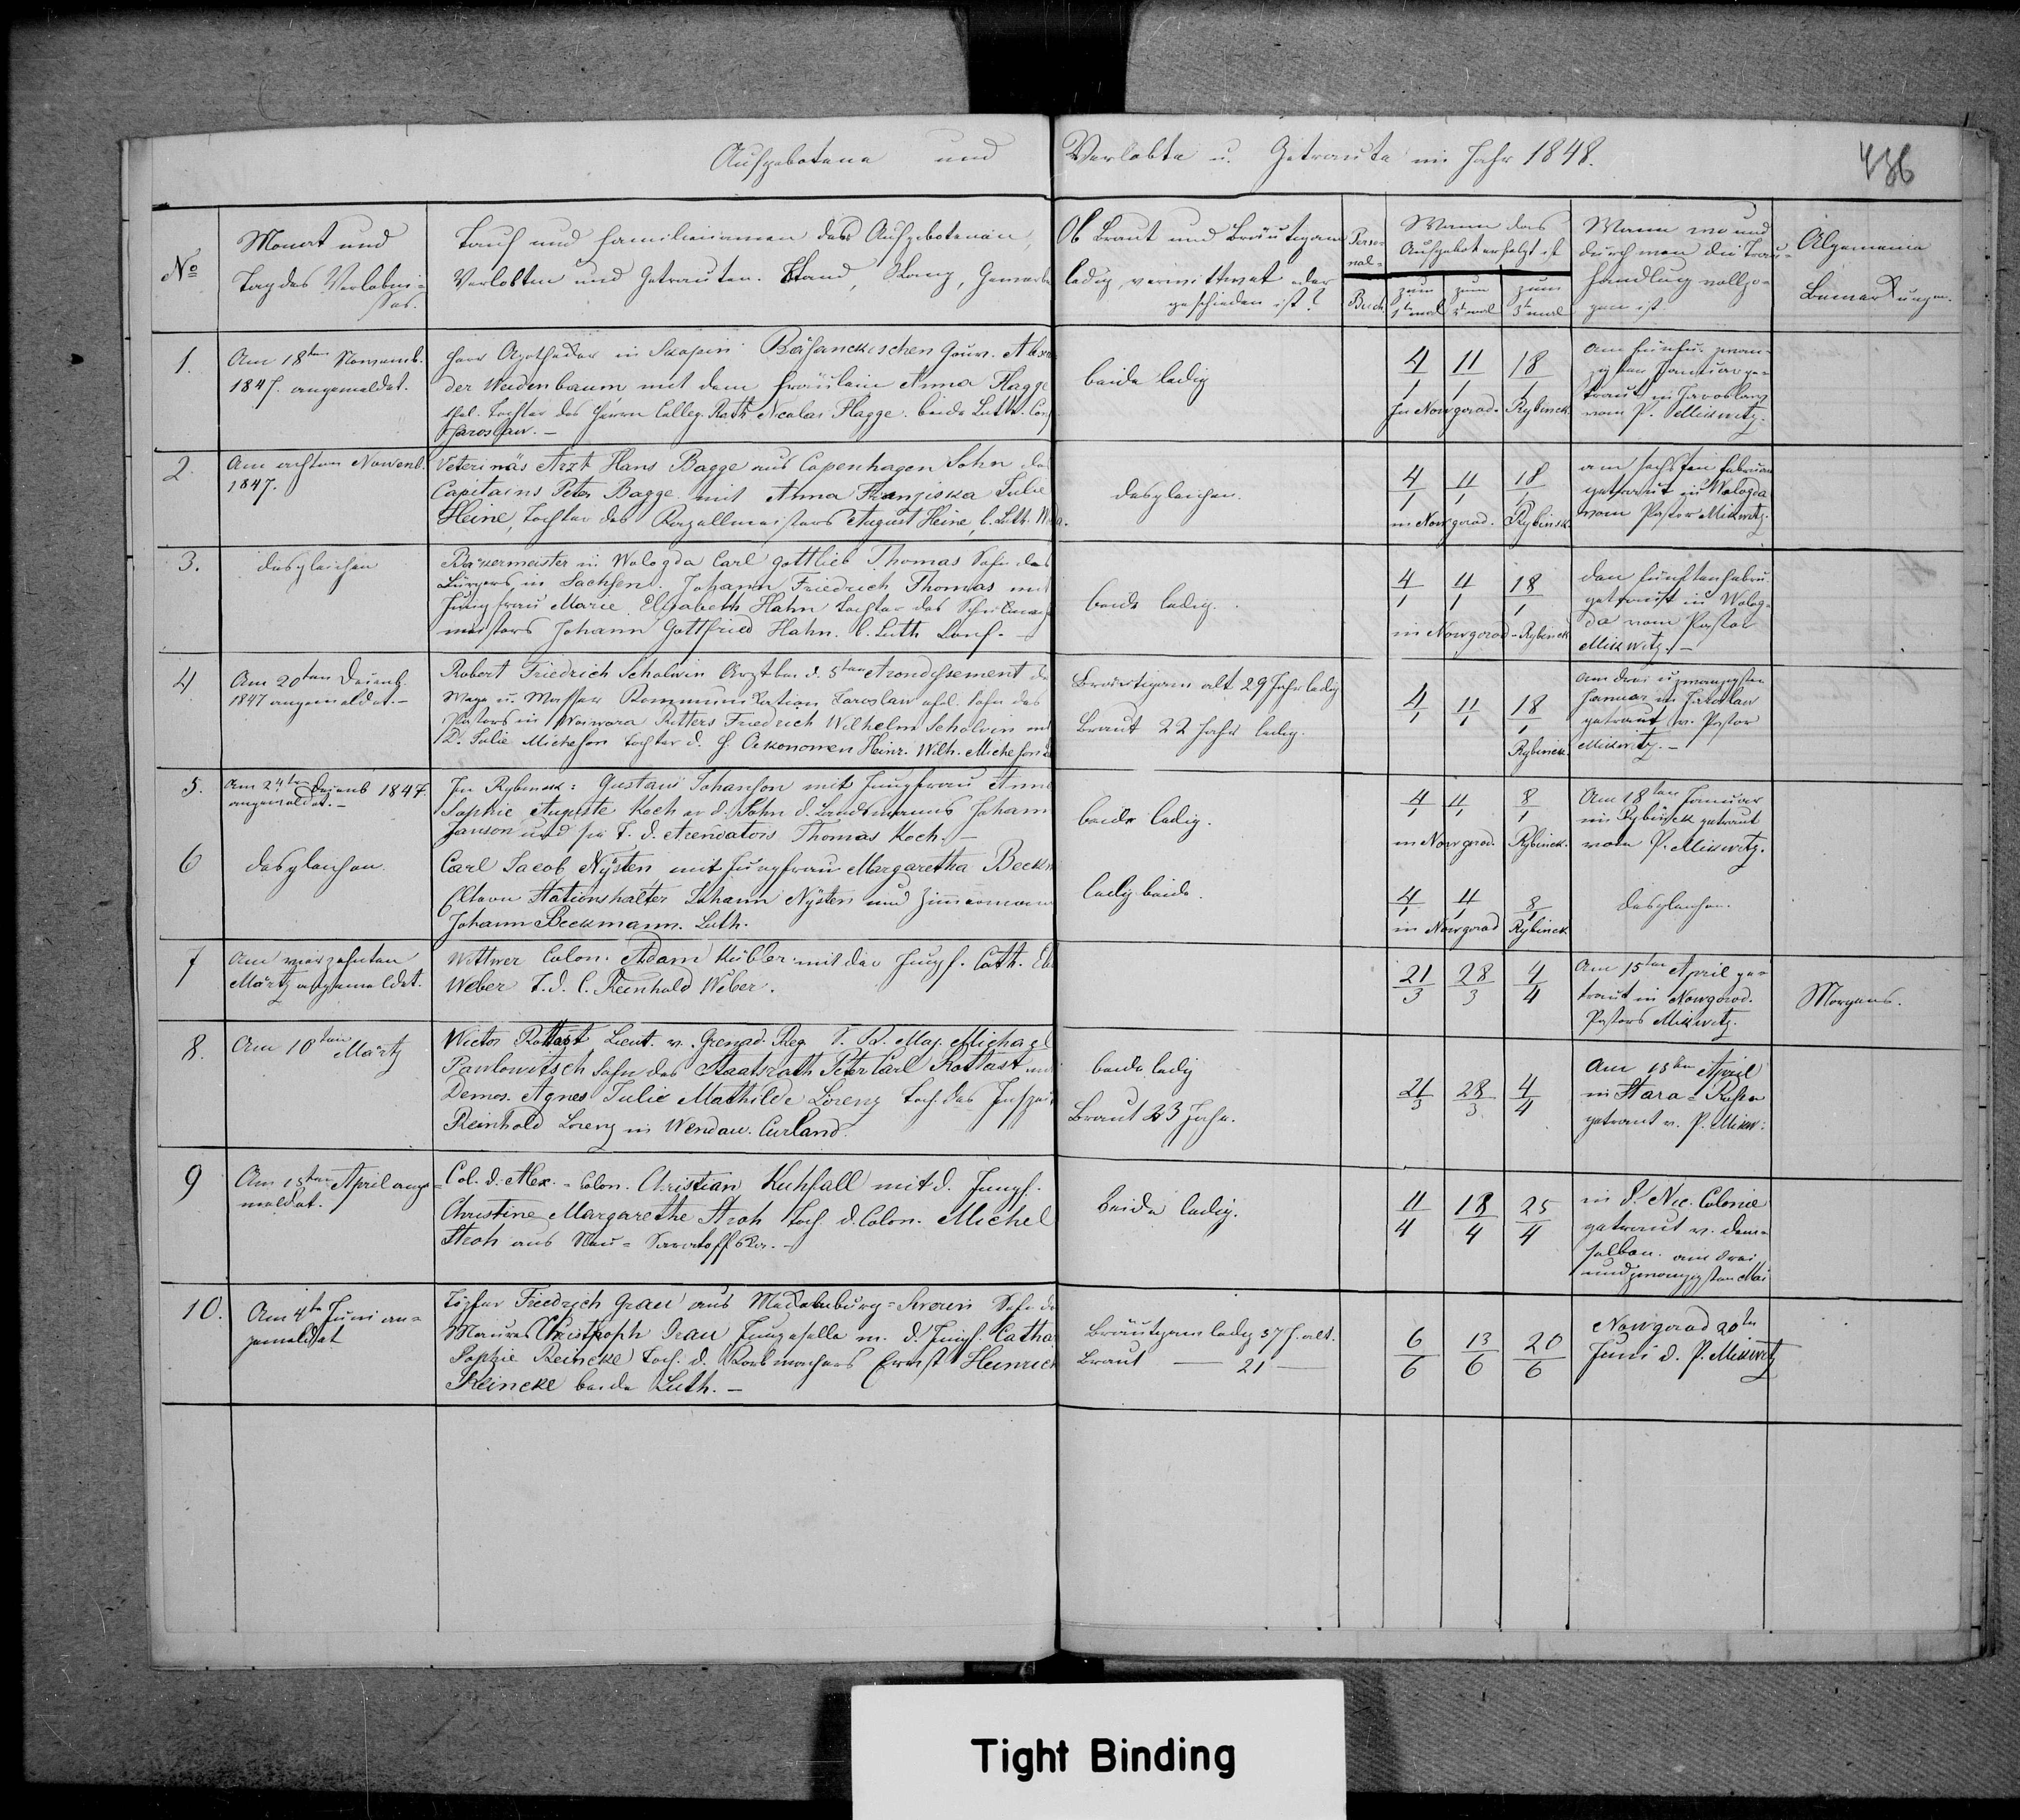 Aufgebotene und Verlobte u. Getraute im Jahr 1848.
436
No
Monat und
Tag des Verlöbnis-
ses.
Tauf und Familiennamen des Aufgebotenen,
Verlobten und Getrauten. Stand, Rang, Gewerbe
Ob Braut und Bräutigam
ledig verwittwet oder
geschieden ist?
Perso-
nal-
Buch
Wann das
Aufgebot erfolgt ist
zum 1ten mal
zum 2t mal
zum 3ten mal
Wann wo und
durch wen die Trau-
handlung vollzo-
gen ist.
Algemeine
Bemerkungen.
1.
Am 18ten Novemb.
1847. angemeldet.
Herr Apotheker in Skopin Gouv. Alexan
der Weidenbaum mit dem Fräulein Anna Hagge
ehel. Tochter des Herrn Colleg. Rath Nicolas Hagge. beide Luth. Conf
Jaroslaw. —
beide ledig
4/1 11/1 18/1
In Nowgorod. Rybinsk
am fünfu. zwan-
zigsten Januar ge-
traut in Jaroslaw
vom P. Mickwitz.
2.
Am achten Novemb.
1847.
Veterinär Arzt Hans Bagge aus Copenhagen Sohn des
Capitains Peter Bagge mit Anna Franziska Julie
Heine, Tochter des August Heine, b. Luth.
desgleichen.
4/1 11/1 18/1
in Nowgorod. Rybinsk
am sechsten Februar
getraut in Wologda
vom Pastor Mickwitz.
3.
desgleichen
Bäckermeister in Wologda Carl Gottlieb Thomas Sohn des
Bürgers in Sachsen. Johann Friedrich Thomas mit
Jungfrau Marie Elisabeth Hahn Tochter des
meisters Johann Gottfried Hahn. b. Luth Conf. —
beide ledig.
4/1 11/1 18/1
in Nowgorod - Rybinsk
den fünften Febru.
getraut in Wolog-
da vom Pastor
Mickwitz. —
4
Am 20ten Decemb
1847 angemeldet. —
Robert Friedrich Scholvin Arzt bei d. 5ten Arondissement der
Wege u. Wasser Kommunikation Jaroslaw ehl. Sohn des
Pastors in Ritters Friedrich Wilhelm Scholvin mit
D. Julie Michelson Tochter d. H. Oekonomen Heinr. Wilh. Michelson
Bräutigam alt 29 Jahr ledig
Braut 22 Jahr ledig.
4/1 11/1 18/1
Rybinsk
am drei u zwanzigsten
Januar in Jaroslaw
getraut v. Pastor
Mickwitz. —
5.
Am 24ten Decemb 1847.
angemeldet. —
In Rybinsk: Gustav Johanson mit Jungfrau Anna
Sophie Auguste Koch er d. Sohn d. Landmanns Johann
Janson und sie T. d. Arendators Thomas Koch. —
beide ledig.
4/1 11/1 8/1
in Nowgorod. Rybinsk.
Am 18ten Januar
in Rybinsk getraut
vom P. Mickwitz.
6
desgleichen.
Carl Jacob Nÿsten mit Jungfrau Margaretha Beckm
Eltern Stationshalter Johann Nÿsten und Zimmermann
Johann Beckmann. Luth.
ledig beide.
4/1 11/1 8/1
in Nowgorod Rybinsk
desgleichen.
7
Am vierzehnten
Märtz angemeldet.
Wittwer Colon. Adam Kübler mit der Jungf. Cath.
Weber T. d. C. Reinhold Weber.
21/3 28/3 4/4
Am 15ten April ge-
traut in Nowgorod.
Pastors Mickwitz.
Morgens.
8.
Am 10ten Märtz
Victor Rottast Lieut. v. Grenad. Reg. S. K. Maj. Michael
Pawlowitsch Sohn des Staatsrath Peter Carl Rottast mit
Demos. Agnes Julie Mathilde Lorenz Toch. des
Reinhold Lorenz in Wendau. Curland.
beide ledig
Braut 23 Jahr.
21/3 28/3 4/4
Am 15ten April
in Stara-Russa
getraut v. P. Mickw:
9
Am 15ten April ange-
meldet.
Col. d. Alex.- Colon. Christian Kuhfall mit d. Jungf.
Christine Margarethe Stroh Toch. d. Colon. Michel
Stroh aus Neu-Saratoffska. —
Beide ledig.
11/4 18/4 25/4
in d. Nic. Colonie
getraut v. dem-
selben. am drei
und zwanzigsten Mai
10.
Am 4ten Juni an-
gemeldet
Töpfer Friedrich Grau aus Sohn de
Maurers Christoph Grau Junggeselle m. d. Jungf. Catha
Sophie Reincke Toch. d. Korbmachers Ernst Heinrich
Reincke beide Luth. —
Bräutigam ledig 37 J. alt.
Braut — 21 —
6/6 13/6 20/6
Nowgorod 20ten
Juni d. P. Mickwitz
Tight Binding